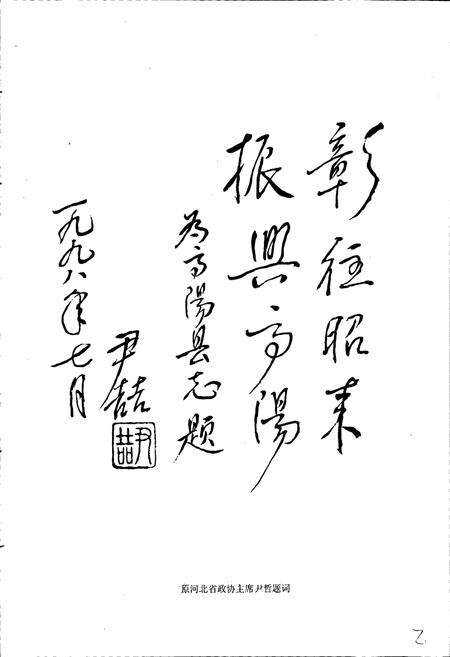 彰往昭来
振興高陽
为高陽县志题
尹喆
一九九八年七月
原河北省政协主席尹哲题词